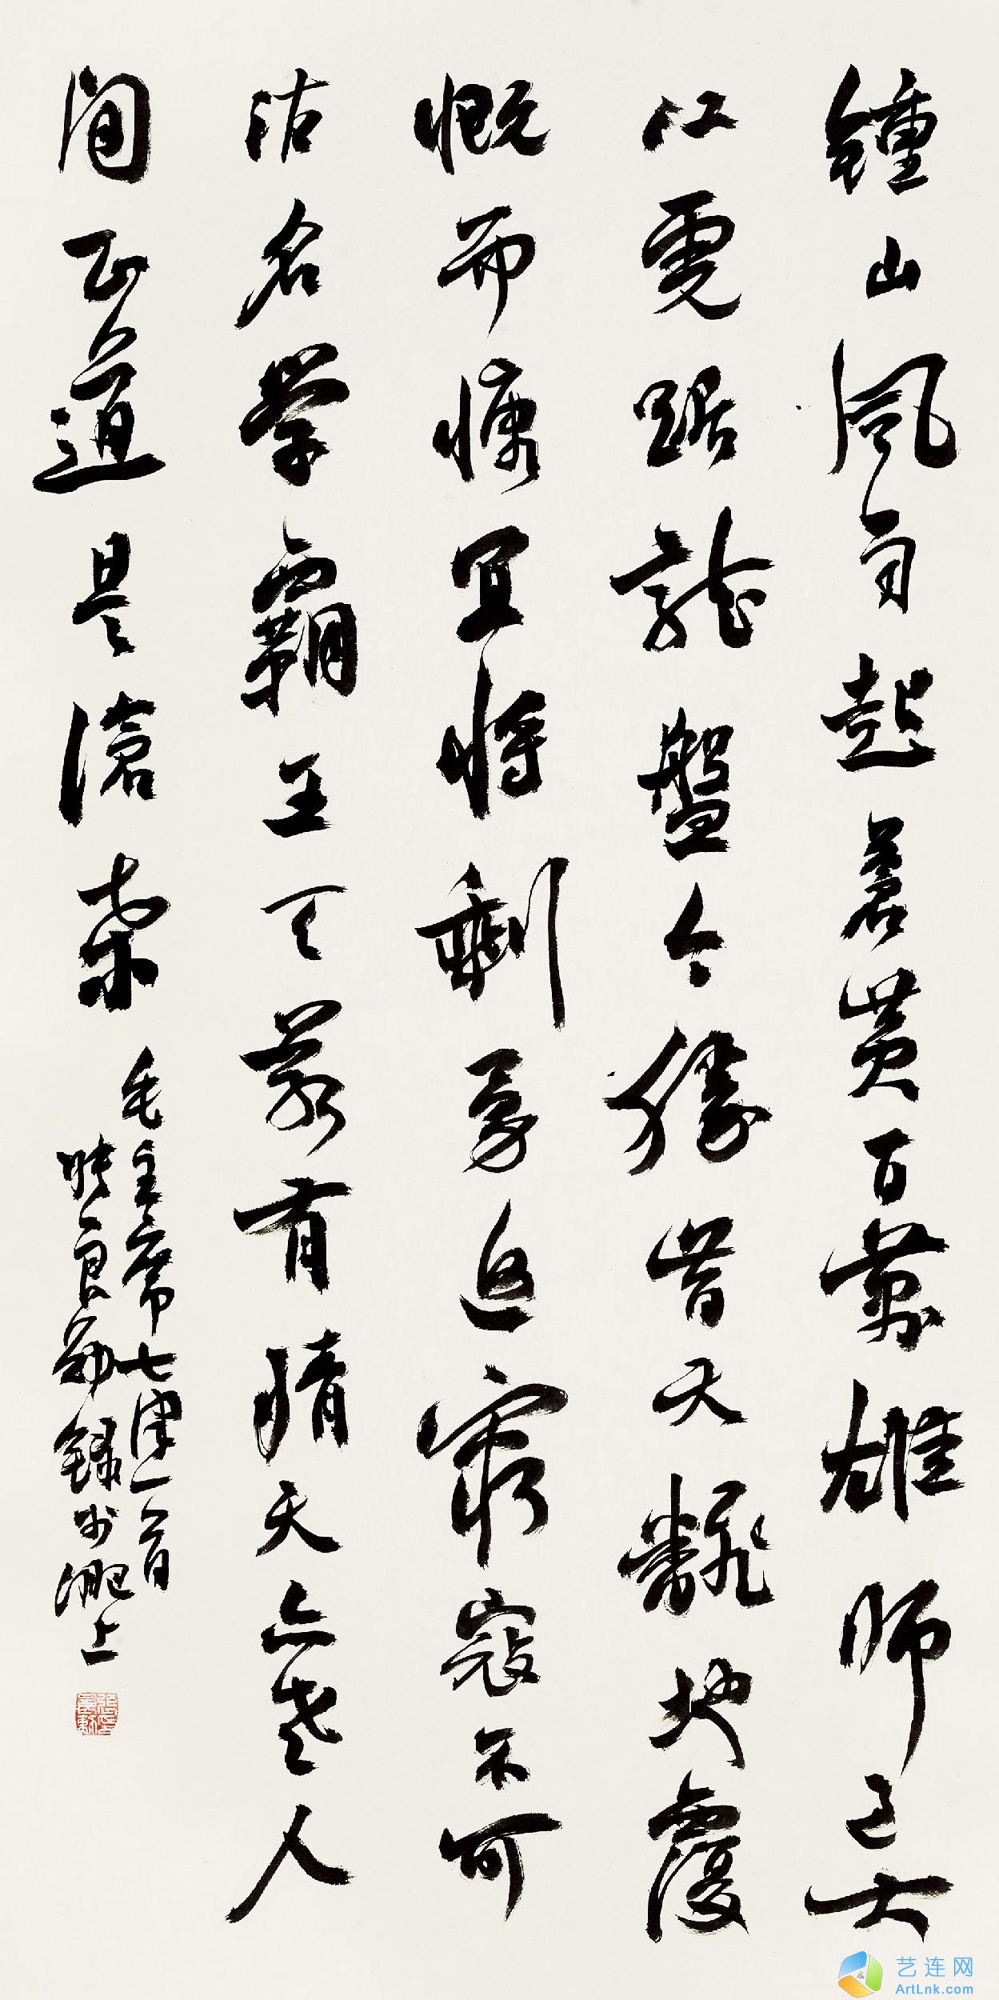 鍾山風雨起蒼黃百萬雄師過大
江虎踞龍盤今勝昔天飜地覆
慨而慷宜將剩勇追窮寇不可
沽名學霸王天若有情天亦老人
間正道是滄桑
毛主席七律一首
張良勛錄於淝上
艺连网
ArtLnk.com